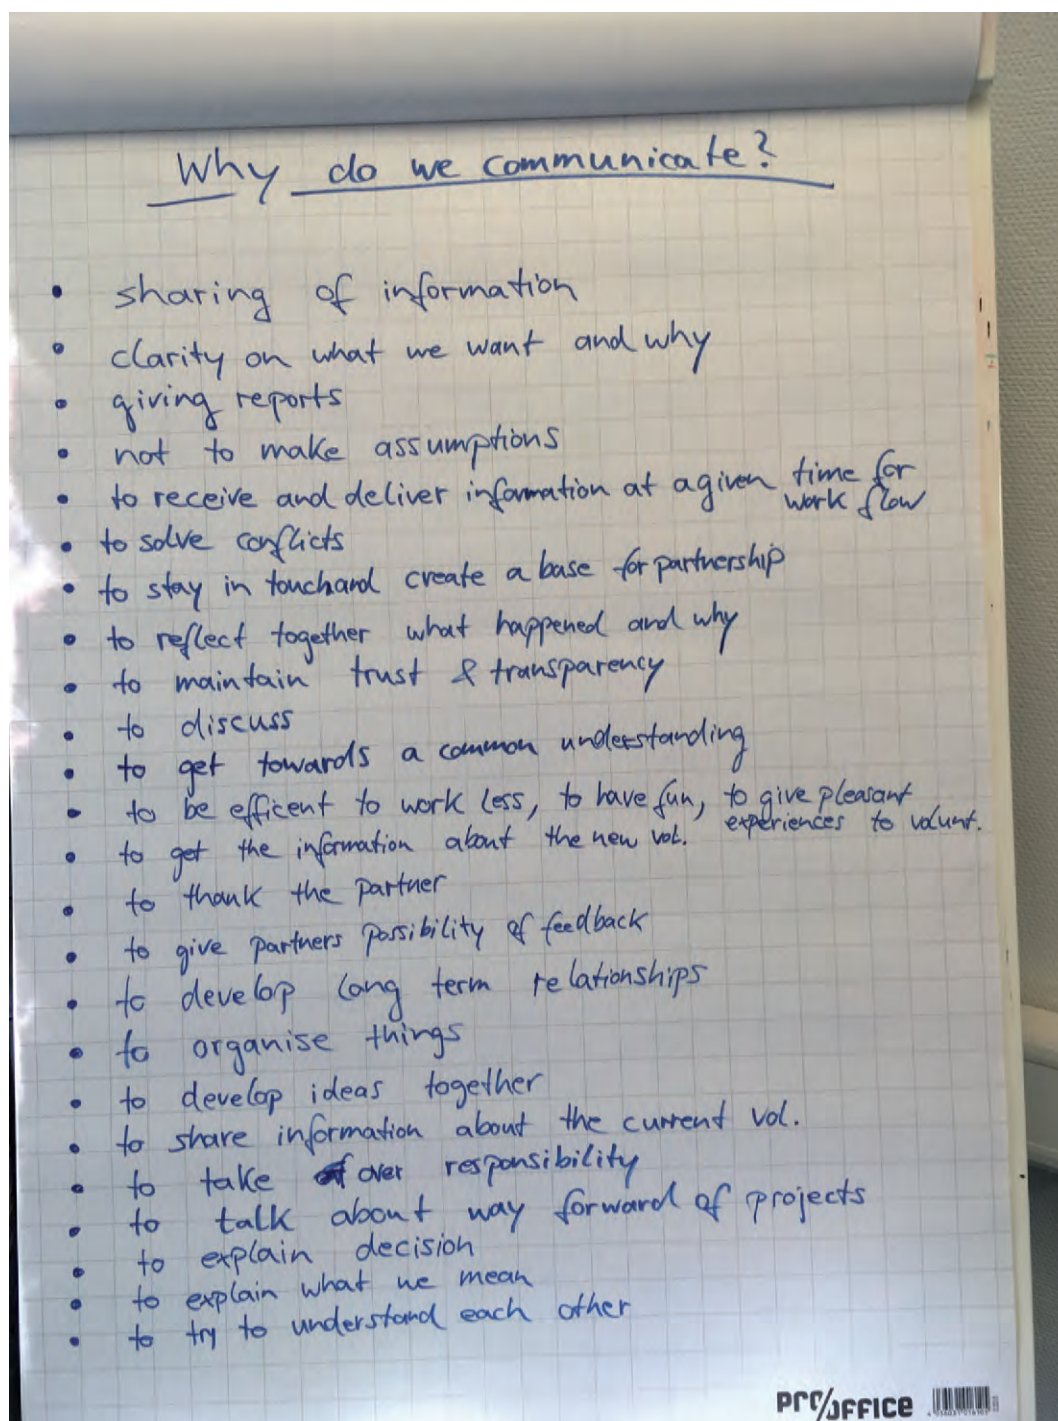 Why do we communicate?
• sharing of information
• clarity on what we want and why
• giving reports
• not to make assumptions
• to receive and deliver information at a given time for
work flow
• to solve conflicts
• to stay in touch and create a base for partnership
• to reflect together what happened and why
• to maintain trust & transparency
• to discuss
• to get towards a common understanding
• to be efficent to work less, to have fun, to give pleasant
experiences to volunt.
• to get the information about the new vol.
• to thank the partner
• to give partners possibility of feedback
• to develop long term relationships
• to organise things
• to develop ideas together
• to share information about the current vol.
• to take over responsibility
• to talk about way forward of projects
• to explain decision
• to explain what we mean
• to try to understand each other
PRO/OFFICE